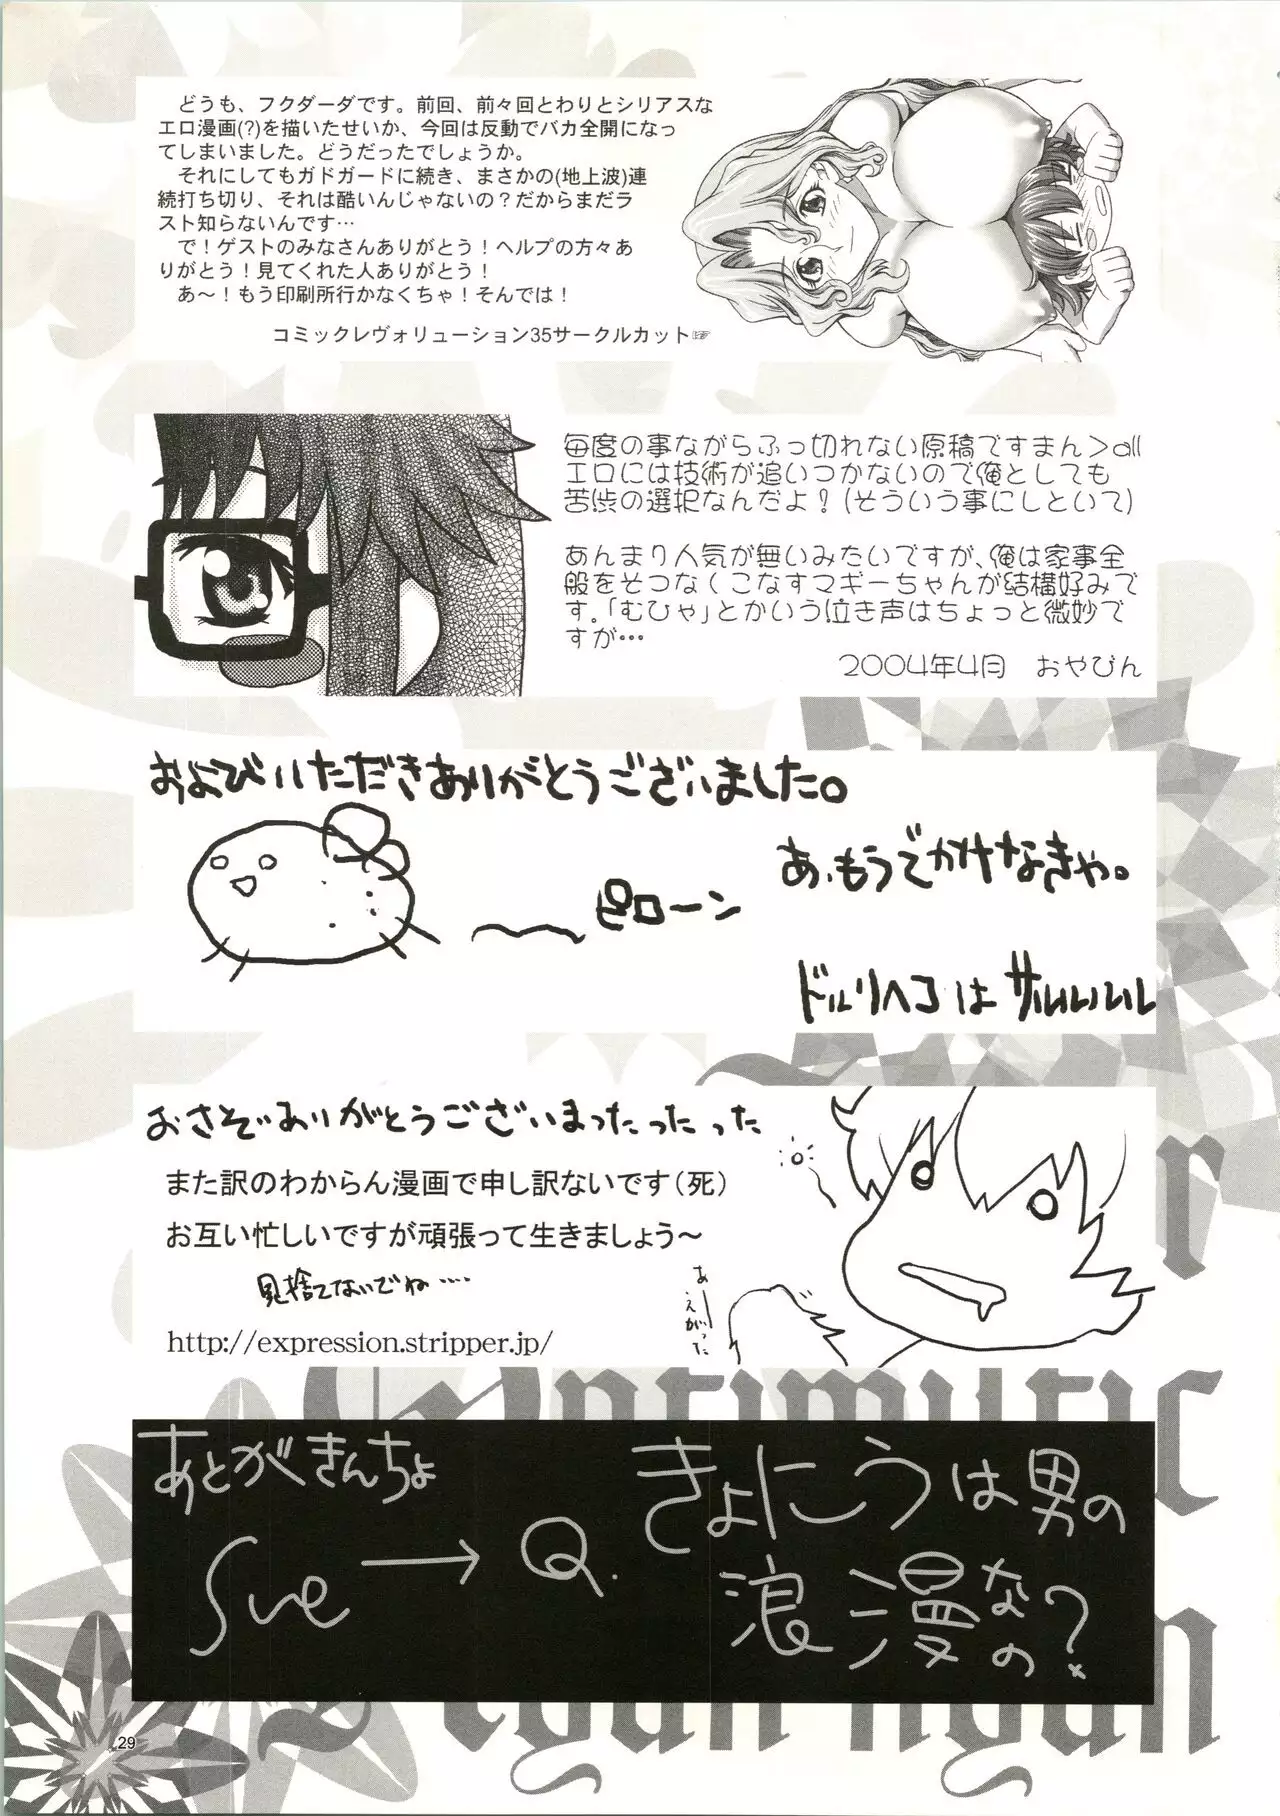 どうも、フクダーダです。前回、前々回とわりとシリアスな
エロ漫画(?)を描いたせいか、今回は反動でバカ全開になっ
てしまいました。どうだったでしょうか。
それにしてもガドガードに続き、まさかの(地上波)連
続打ち切り、それは酷いんじゃないの？だからまだラ
スト知らないんです…
で！ゲストのみなさんありがとう！ヘルプの方々あ
りがとう！見てくれた人ありがとう！
あ～！もう印刷所行かなくちゃ！そんでは！
コミックレヴォリューション35サークルカット☞
毎度の事ながらふっ切れない原稿ですまん＞all
エロには技術が追いつかないので俺としても
苦渋の選択なんだよ？(そういう事にしといて)
あんまり人気が無いみたいですが、俺は家事全
般をそつなくこなすマギーちゃんが結構好みで
す。「むひゃ」とかいう泣き声はちょっと微妙で
すが…
2004年4月　おやびん
およびいただきありがとうございました。
ピローン
あ、もうでかけなきゃ。
ドルリヘコは
おさそいありがとうございまったったった
また訳のわからん漫画で申し訳ないです（死）
お互い忙しいですが頑張って生きましょう～
見捨てないでね‥‥
http://expression.stripper.jp/
あーえがった
あとがきんちょ
Sue → Q.
きょにうは男の
浪漫なの？
29